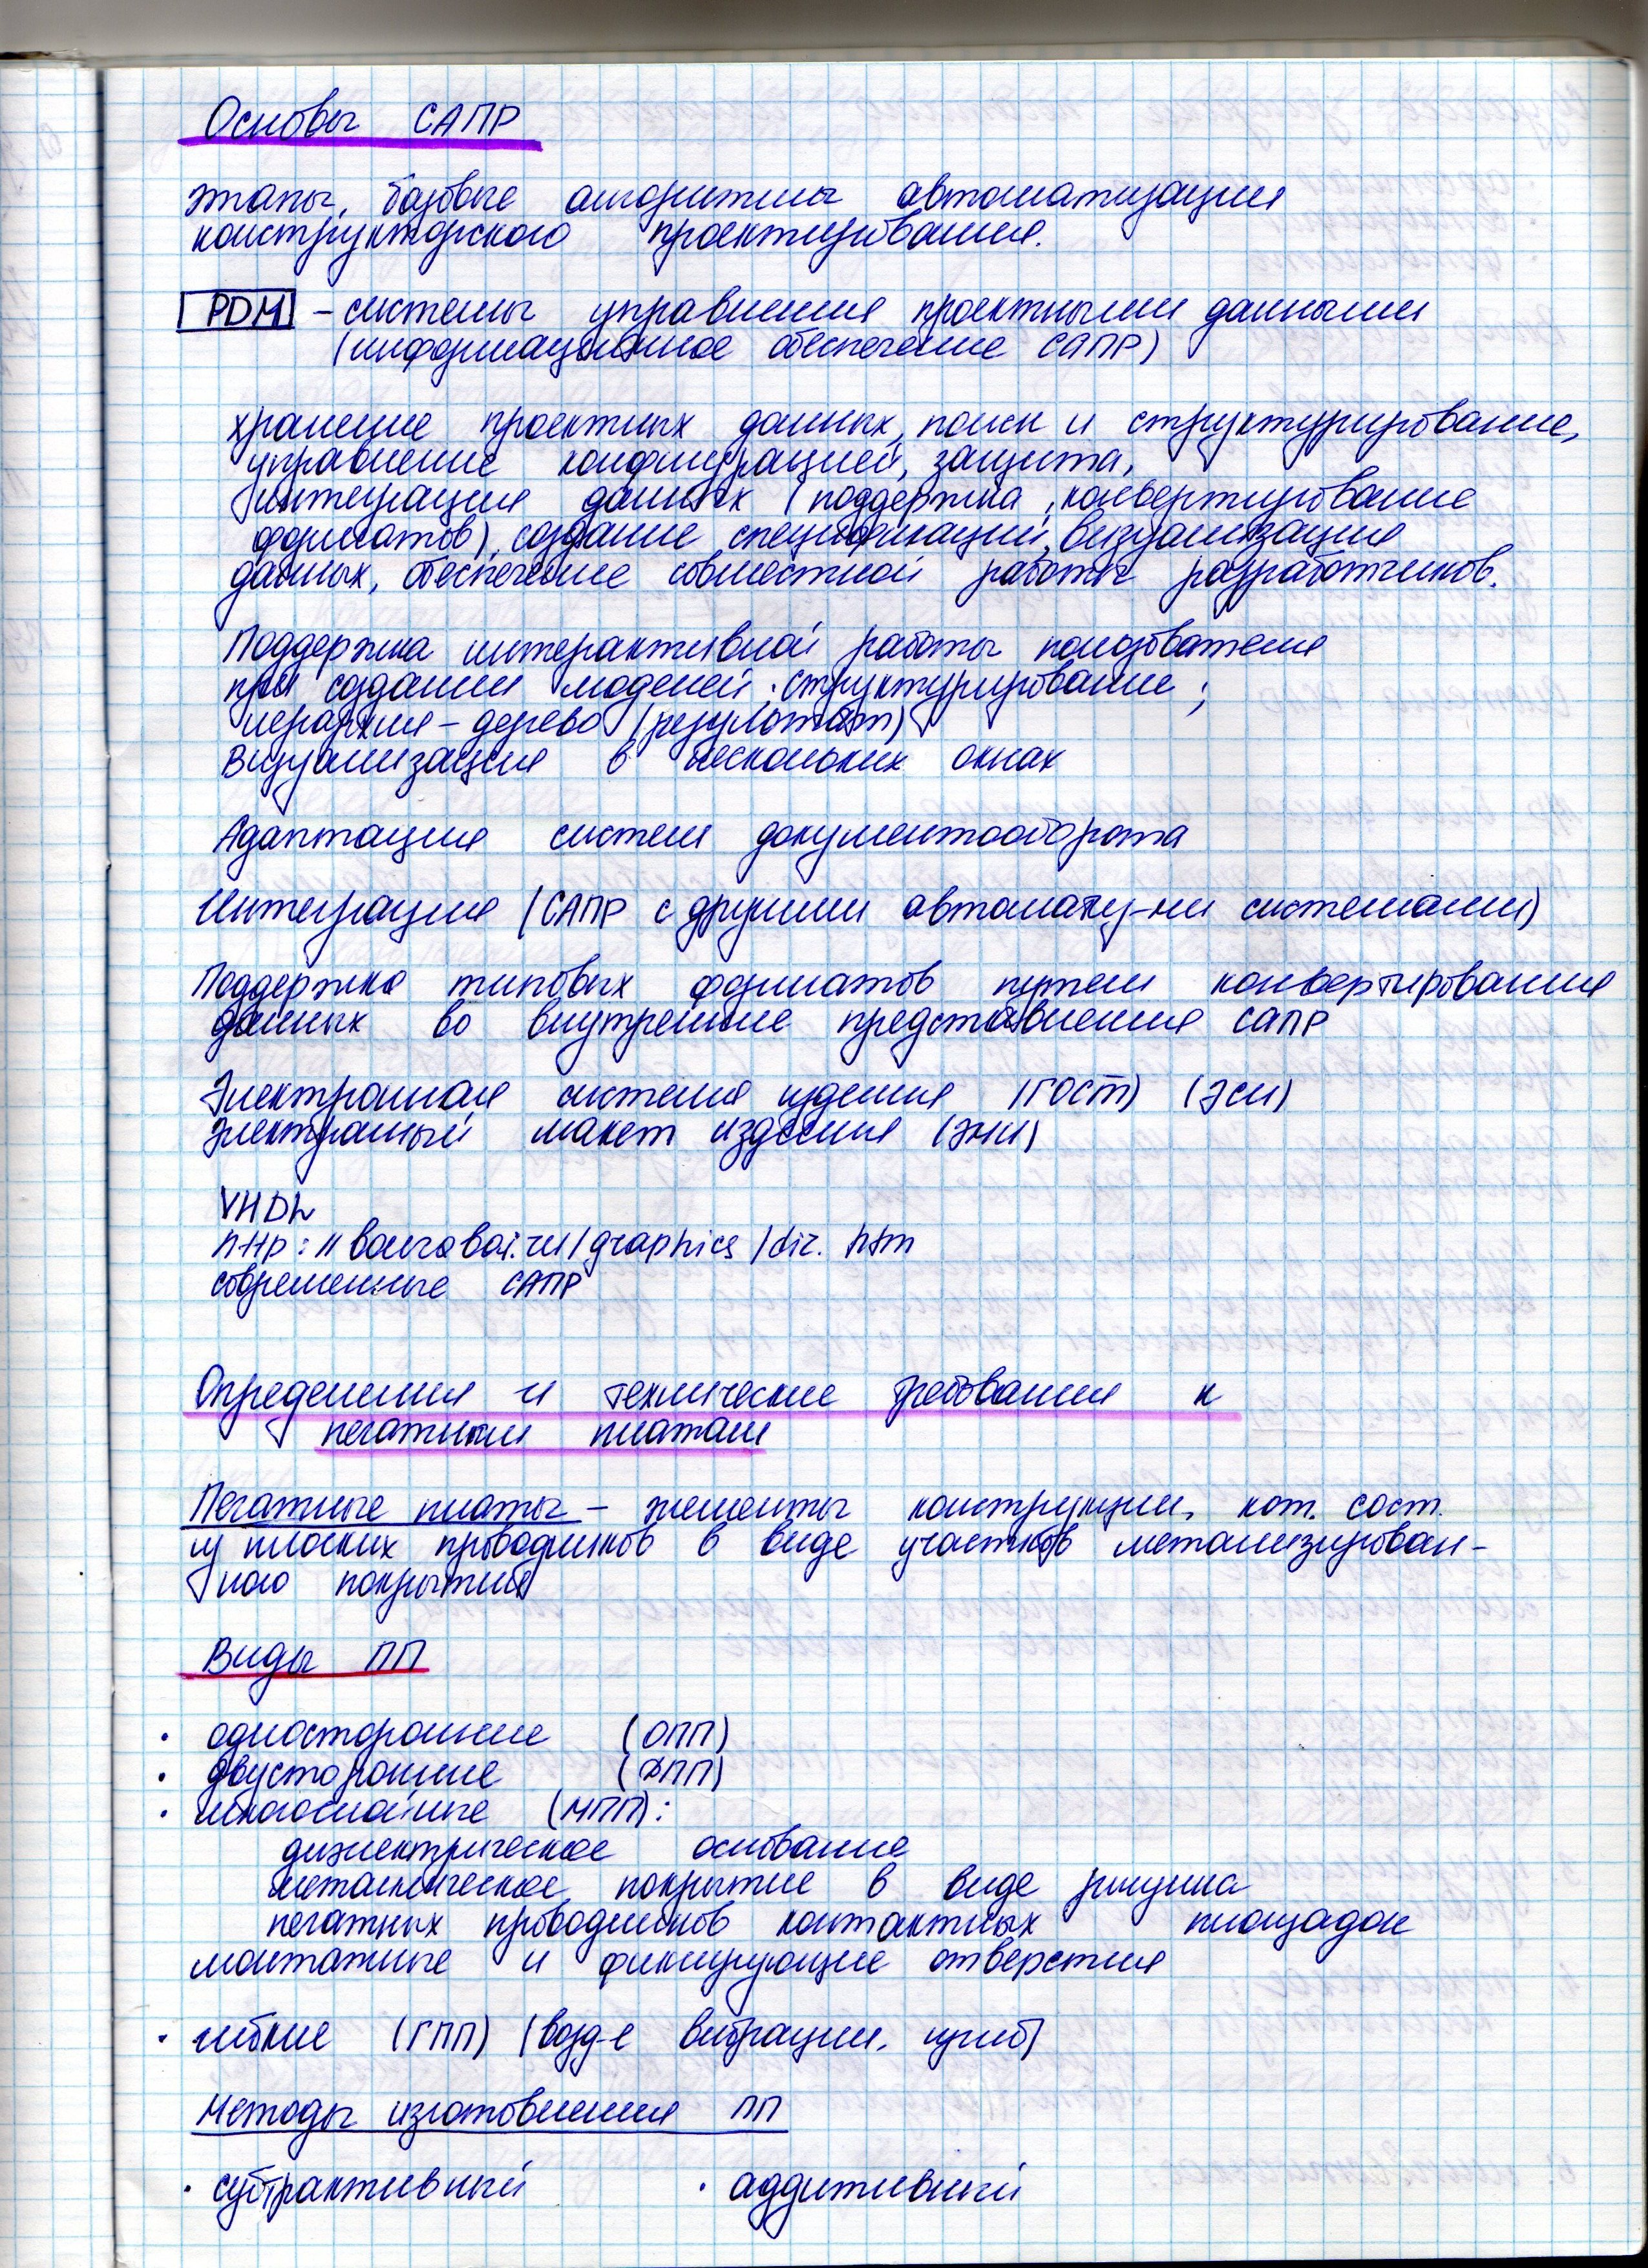 Основы САПР
этапы, базовые алгоритмы автоматизации
конструкторского проектирования.
PDM – системы управления проектными данными
(информационное обеспечение САПР)
хранение проектных данных, поиск и структурирование,
управление конфигурацией, защита,
интеграция данных (поддержка, конвертирование
форматов), создание спецификаций, визуализация
данных, обеспечение совместной работы разработчиков.
Поддержка интерактивной работы пользователя
при создании моделей. структурирование;
иерархия – дерево (результат)
Визуализация в нескольких окнах
Адаптация систем документооборота
Интеграция (САПР с другими автоматиз-ми системами)
Поддержка типовых форматов путем конвертирования
данных во внутренние представления САПР
Электронная система изделия (ГОСТ) (ЭСИ)
Электронный макет изделия (ЭМИ)
VHDL
http: // .ru/graphics/dir. htm
современные САПР
Определения и технические требования к
печатным платам
Печатные платы – элементы конструкции, кот. сост.
из плоских проводников в виде участков металлизирован-
ного покрытия
Виды ПП
· односторонние (ОПП)
· двусторонние (ДПП)
· многослойные (МПП):
диэлектрическое основание
металлическое покрытие в виде рисунка
печатных проводников контактных площадок
монтажные и фиксирующие отверстия
· гибкие (ГПП) (возд-е вибрации, изгиб)
Методы изготовления ПП
· субтрактивный · аддитивный